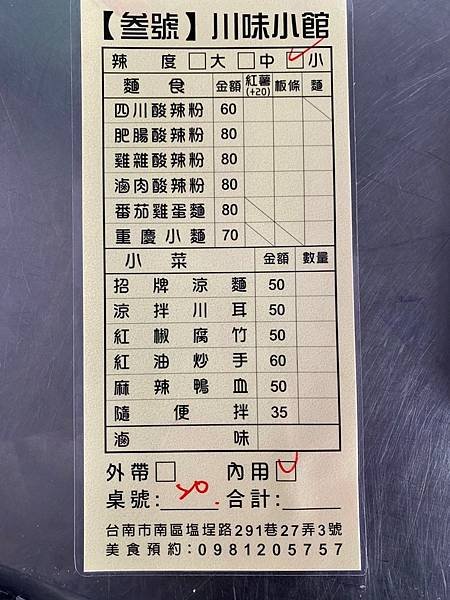 【叁號】川味小館
辣度□大□中□小
麵食 金額 紅薯(+20) 板條 麵
四川酸辣粉 60
肥腸酸辣粉 80
雞雜酸辣粉 80
滷肉酸辣粉 80
番茄雞蛋麵 80
重慶小麵 70
小菜 金額 數量
招牌涼麵 50
涼拌川耳 50
紅椒腐竹 50
紅油炒手 60
麻辣鴨血 50
隨便拌 35
滷味
外帶□ 內用□
桌號: 合計:
台南市南區塩埕路291巷27弄3號
美食預約:0981205757